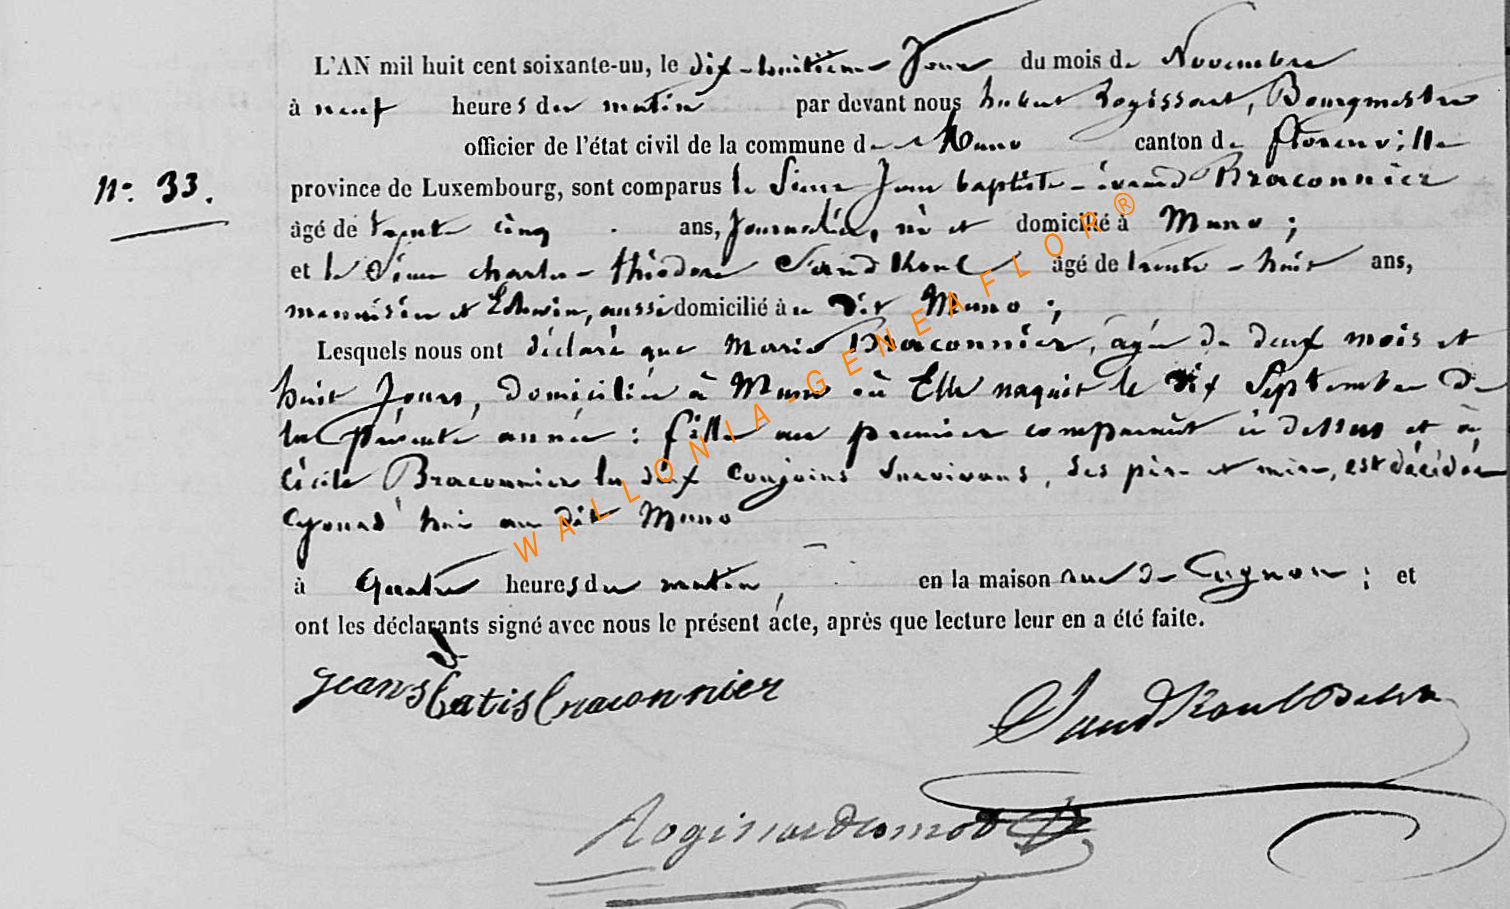 L'AN mil huit cent soixante-un, le dix-huitième Jour du mois de Novembre
à neuf heures du matin par devant nous hubert Rogissart, Bourgmestre
officier de l'état civil de la commune de Muno canton de florenville
N° 33. province de Luxembourg, sont comparus le Sieur Jean baptiste-évrard Braconnier
âgé de trente cinq ans, Journalier, né et domicilié à Muno ;
et le Sieur charles-théodore Sandkoul âgé de trente-huit ans,
menuisier et, aussi domicilié à u dit Muno ;
Lesquels nous ont déclaré que Marie Braconnier, agée de deux mois et
huit Jours, domiciliée à Muno où Elle naquit le dix Septembre de
la présente année : fille au premier comparant ci dessus et à
Cécile Braconnier les deux conjoins Survivans, Ses père et mère, est décédée
au dit Muno
à Quatre heures du matin, en la maison rue de Cugnon ; et
ont les déclarants signé avec nous le présent acte, après que lecture leur en a été faite.
jeans batis braconnier
WALLONIA-GENEAFLOR®